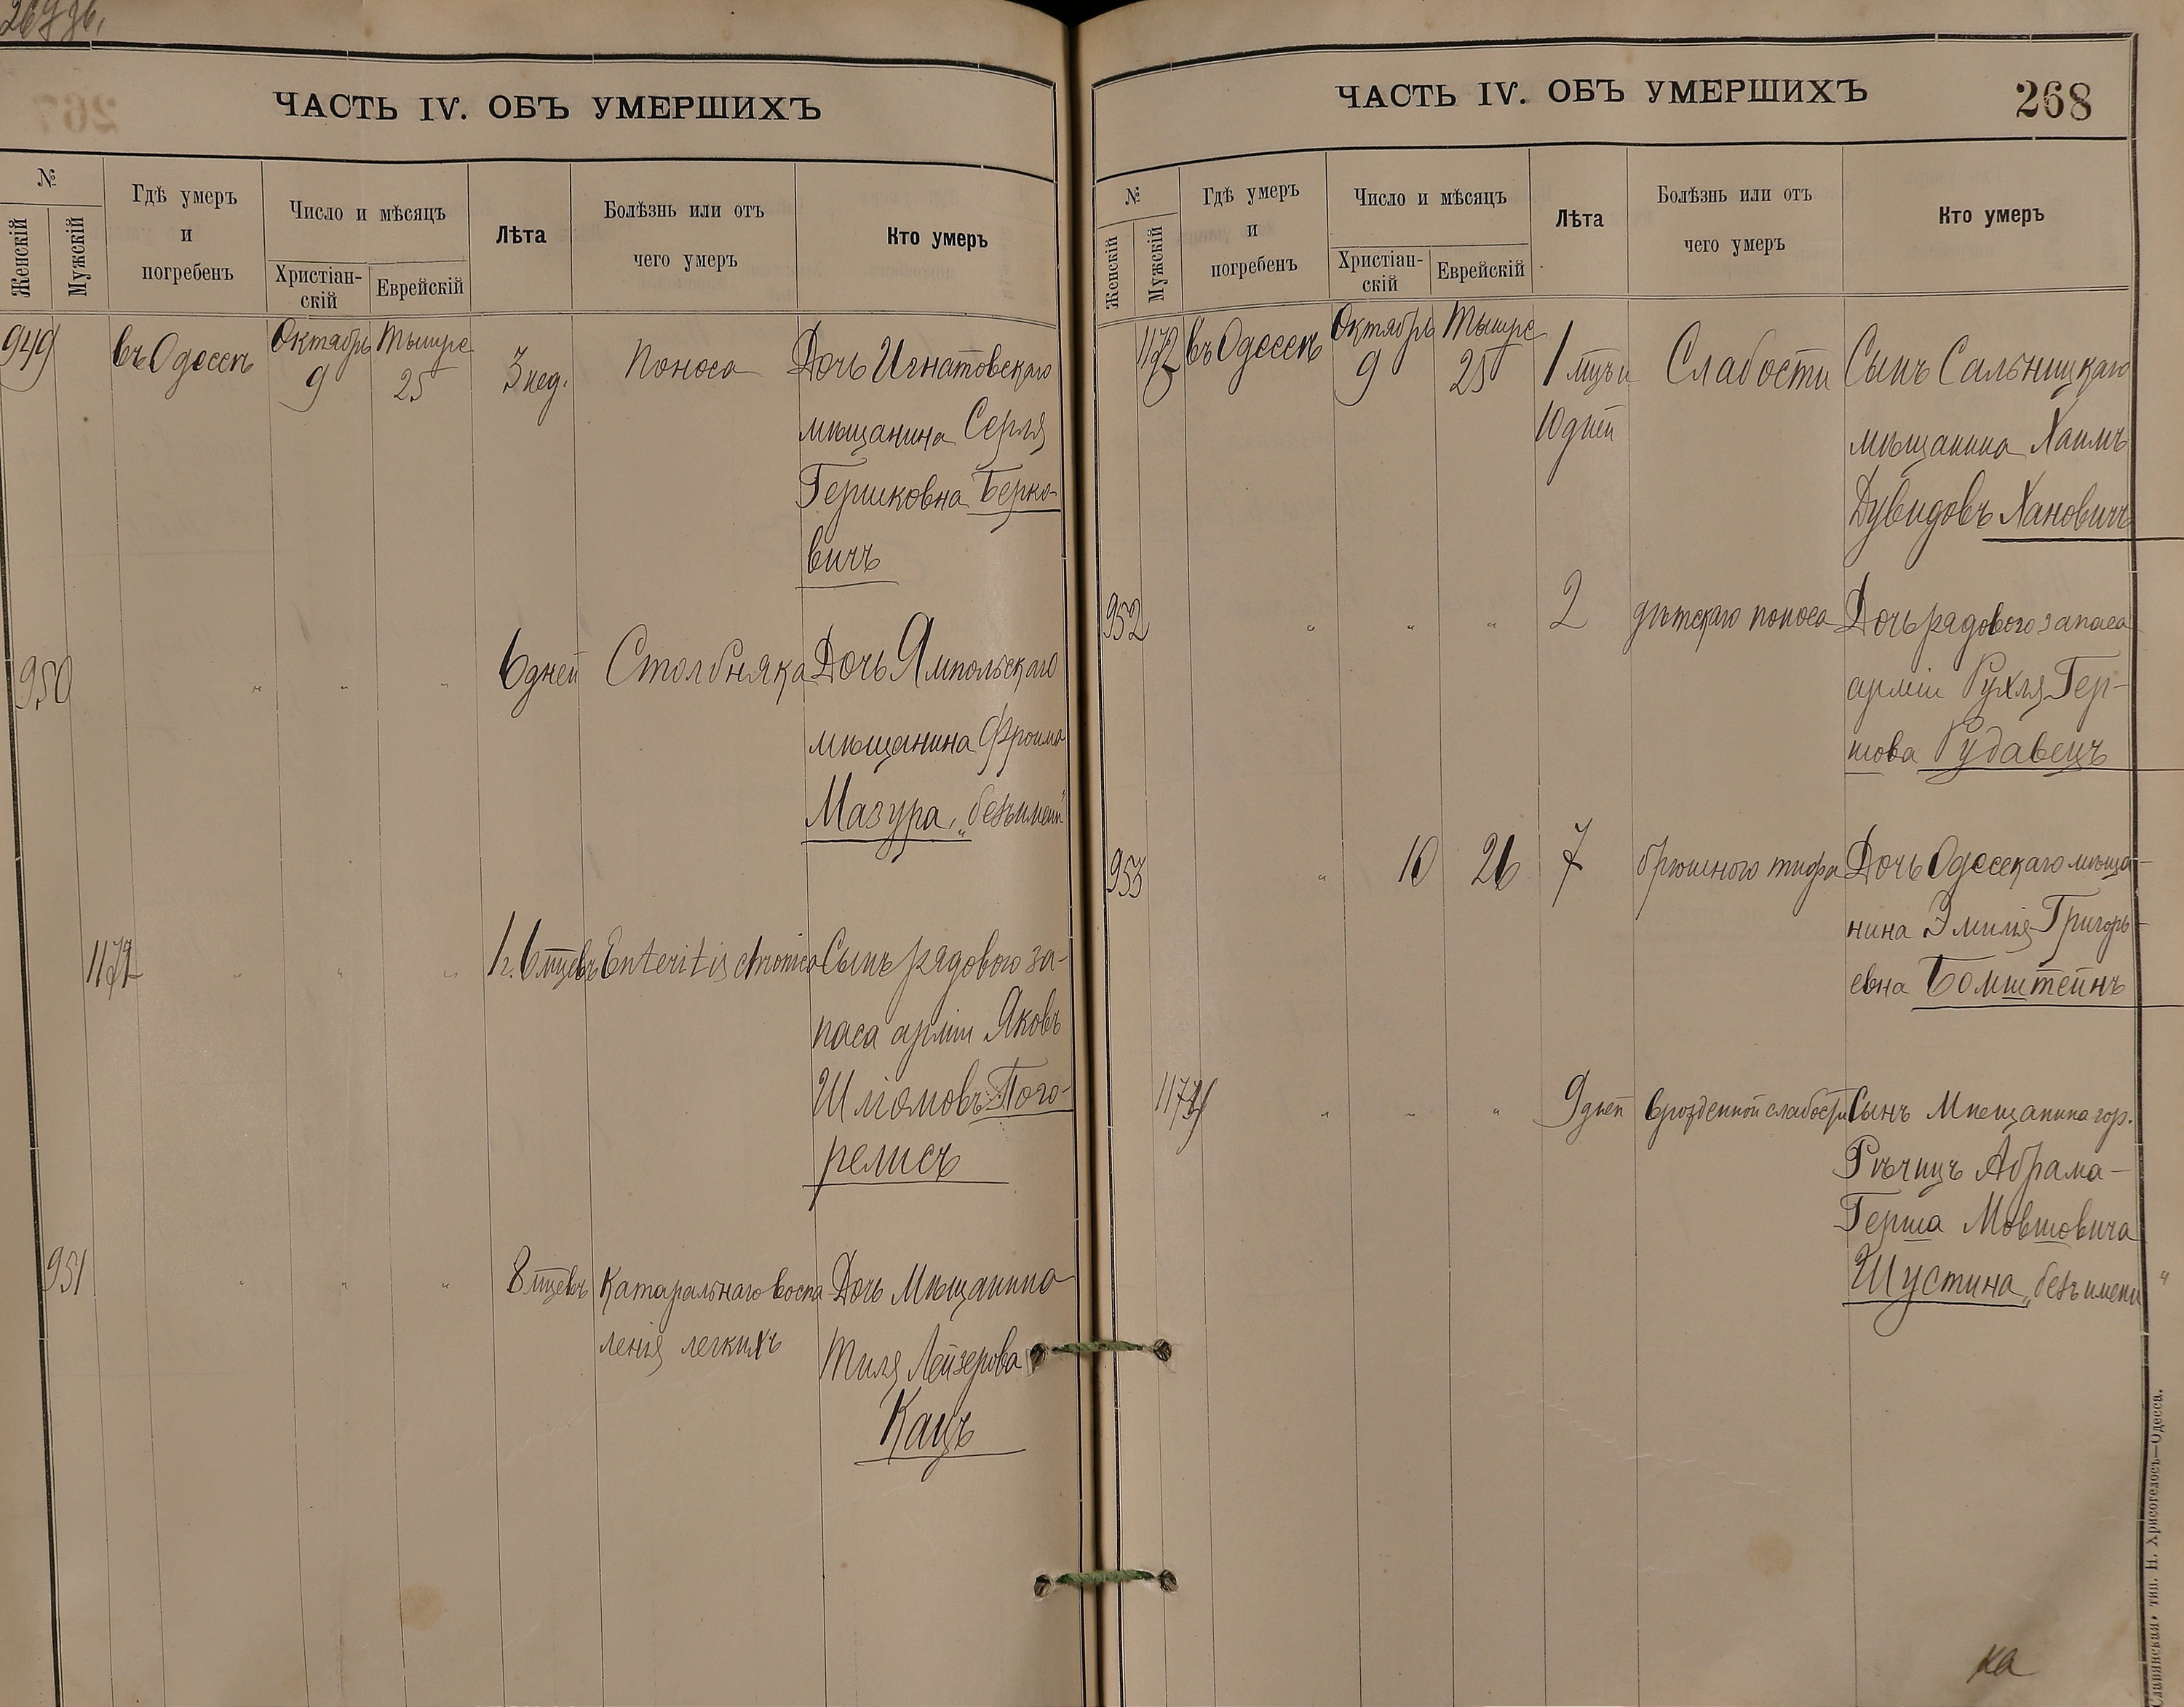 ЧАСТЬ IV. ОБЪ УМЕРШИХЪ
№
Женскій
Мужскій
Гдѣ умеръ
и
погребенъ
Число и мѣсяцъ
Христіан-
скій
Еврейскій
Лѣта
Болѣзнь или отъ
чего умеръ
Кто умеръ
949 въ Одессѣ Октябрь 9 Тышре 25 3 нед. Поноса Дочь Игнатовскаго
мѣщанина Серля
Гершковна Берко-
вичъ
950 " " " 6 дней Столбняка Дочь Ямпольскаго
мѣщанина Фроима
Мазура, „безъ имени"
" " " 1 г. 6 мцевъ Enteritis chronica Сынъ рядового за-
паса арміи Яковъ
Шліомовъ Пого-
релисъ
951 " " " 8 мцевъ Катаральнаго воспа Дочь Мѣщанина
ленія легкихъ Тиля Лейзерова
Кацъ
ЧАСТЬ IV. ОБЪ УМЕРШИХЪ
268
№
Женскій
Мужскій
Гдѣ умеръ
и
погребенъ
Число и мѣсяцъ
Христіан-
скій
Еврейскій
Лѣта
Болѣзнь или отъ
чего умеръ
Кто умеръ
1172 въ Одессѣ Октябрь 9 Тышре 25 1 мцъ и Слабости Сынъ Сальницкаго
10 дней мѣщанина Хаимъ
Дувидовъ Хановичъ
952 " " " 2 дѣтскаго поноса Дочь рядового запаса
арміи Рухля Гер-
шова Рудавецъ
953 " 10 26 7 брюшного тифа Дочь Одесскаго мѣща-
нина Эмилія Григорь-
евна Бомштейнъ
" " " 9 дней врожденной слабости Сынъ Мѣщанина гор.
Рѣчицъ Абрама-
Герша Мовшовича
Шустина „безъ имени"
ка
тип. Н. Хрисогелосъ—Одесса.